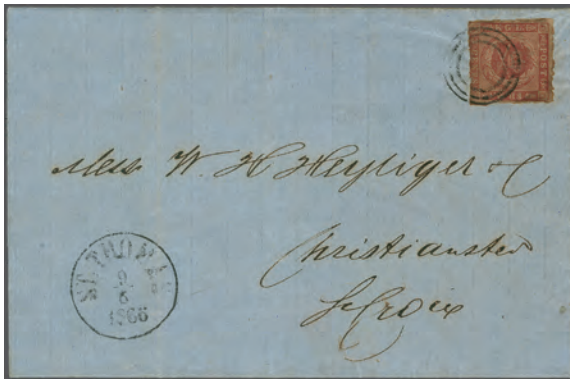 Mess W. H. Heyliger &
Christiansted
St Croix
ST. THOMAS
9
6
1866